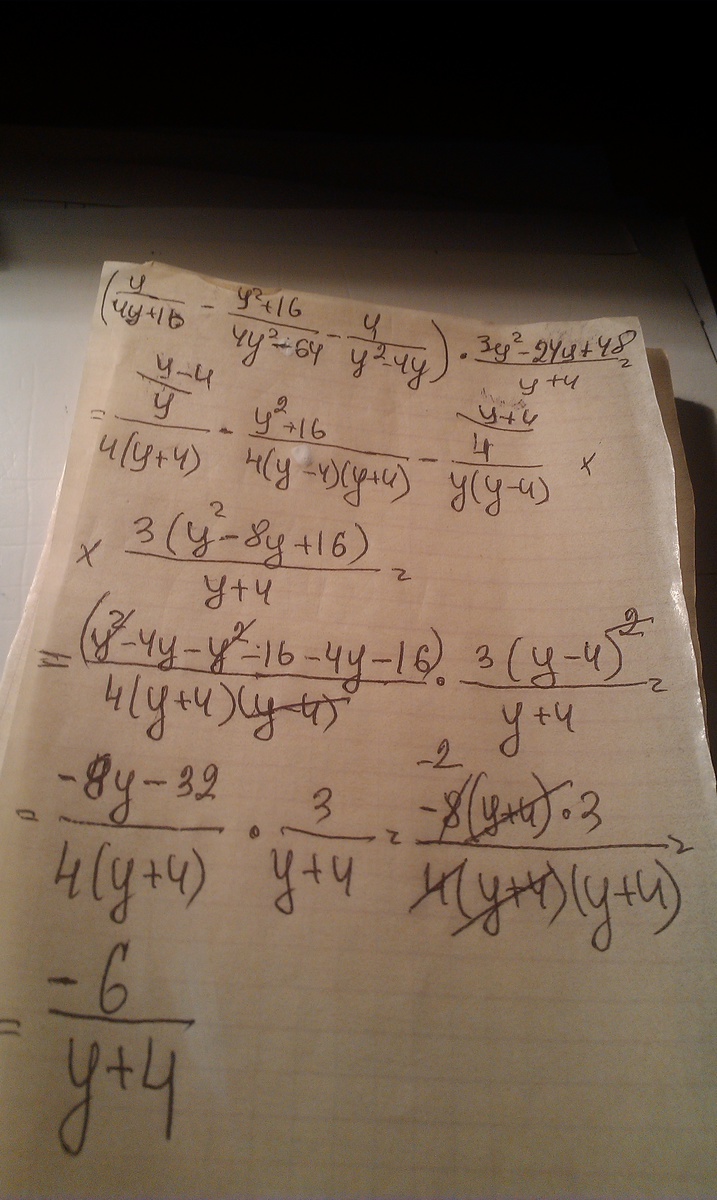 (y/(4y+16) - (y²+16)/(4y²-64) - 4/(y²-4y)) · (3y²-24y+48)/(y+4) =
= y/(4(y+4)) [y-4] - (y²+16)/(4(y-4)(y+4)) - 4/(y(y-4)) [y+4] ×
× 3(y²-8y+16)/(y+4) =
= (y²-4y-y²-16-4y-16)/(4(y+4)(y-4)) · 3(y-4)²/(y+4) =
= (-8y-32)/(4(y+4)) · 3/(y+4) = -2 -8(y+4)·3/(4(y+4)(y+4)) =
= -6/(y+4)